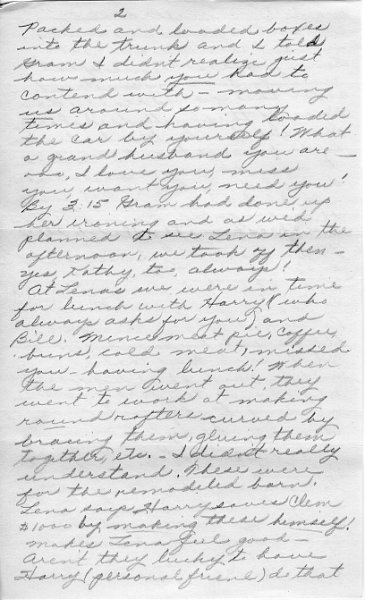 2
Packed and loaded boxes
into the trunk and I told
Gram I didn't realize just
how much you had to
contend with - moving
us around so many
times and having loaded
the car by yourself! What
a grand husband you are -
I love you, miss
you, want you, need you!
By 3:15 Gram had done up
her ironing and as we'd
planned to see Lena in the
afternoon, we took off then -
yes, Kathy, too, always!
At Lena's we were in time
for lunch with Harry (who
always asks for you) and
Bill. Mince meat pie, coffee,
buns, cold meat, missed
you - having lunch! When
the men went out, they
went to work at making
round rafters curved by
bracing them, gluing them
together, etc. - I didn't really
understand. These were
for the remodeled barn.
Lena says Harry saves Clem
$1000 by making these himself!
Makes Lena feel good -
Aren't they lucky to have
Harry (personal friend) do that